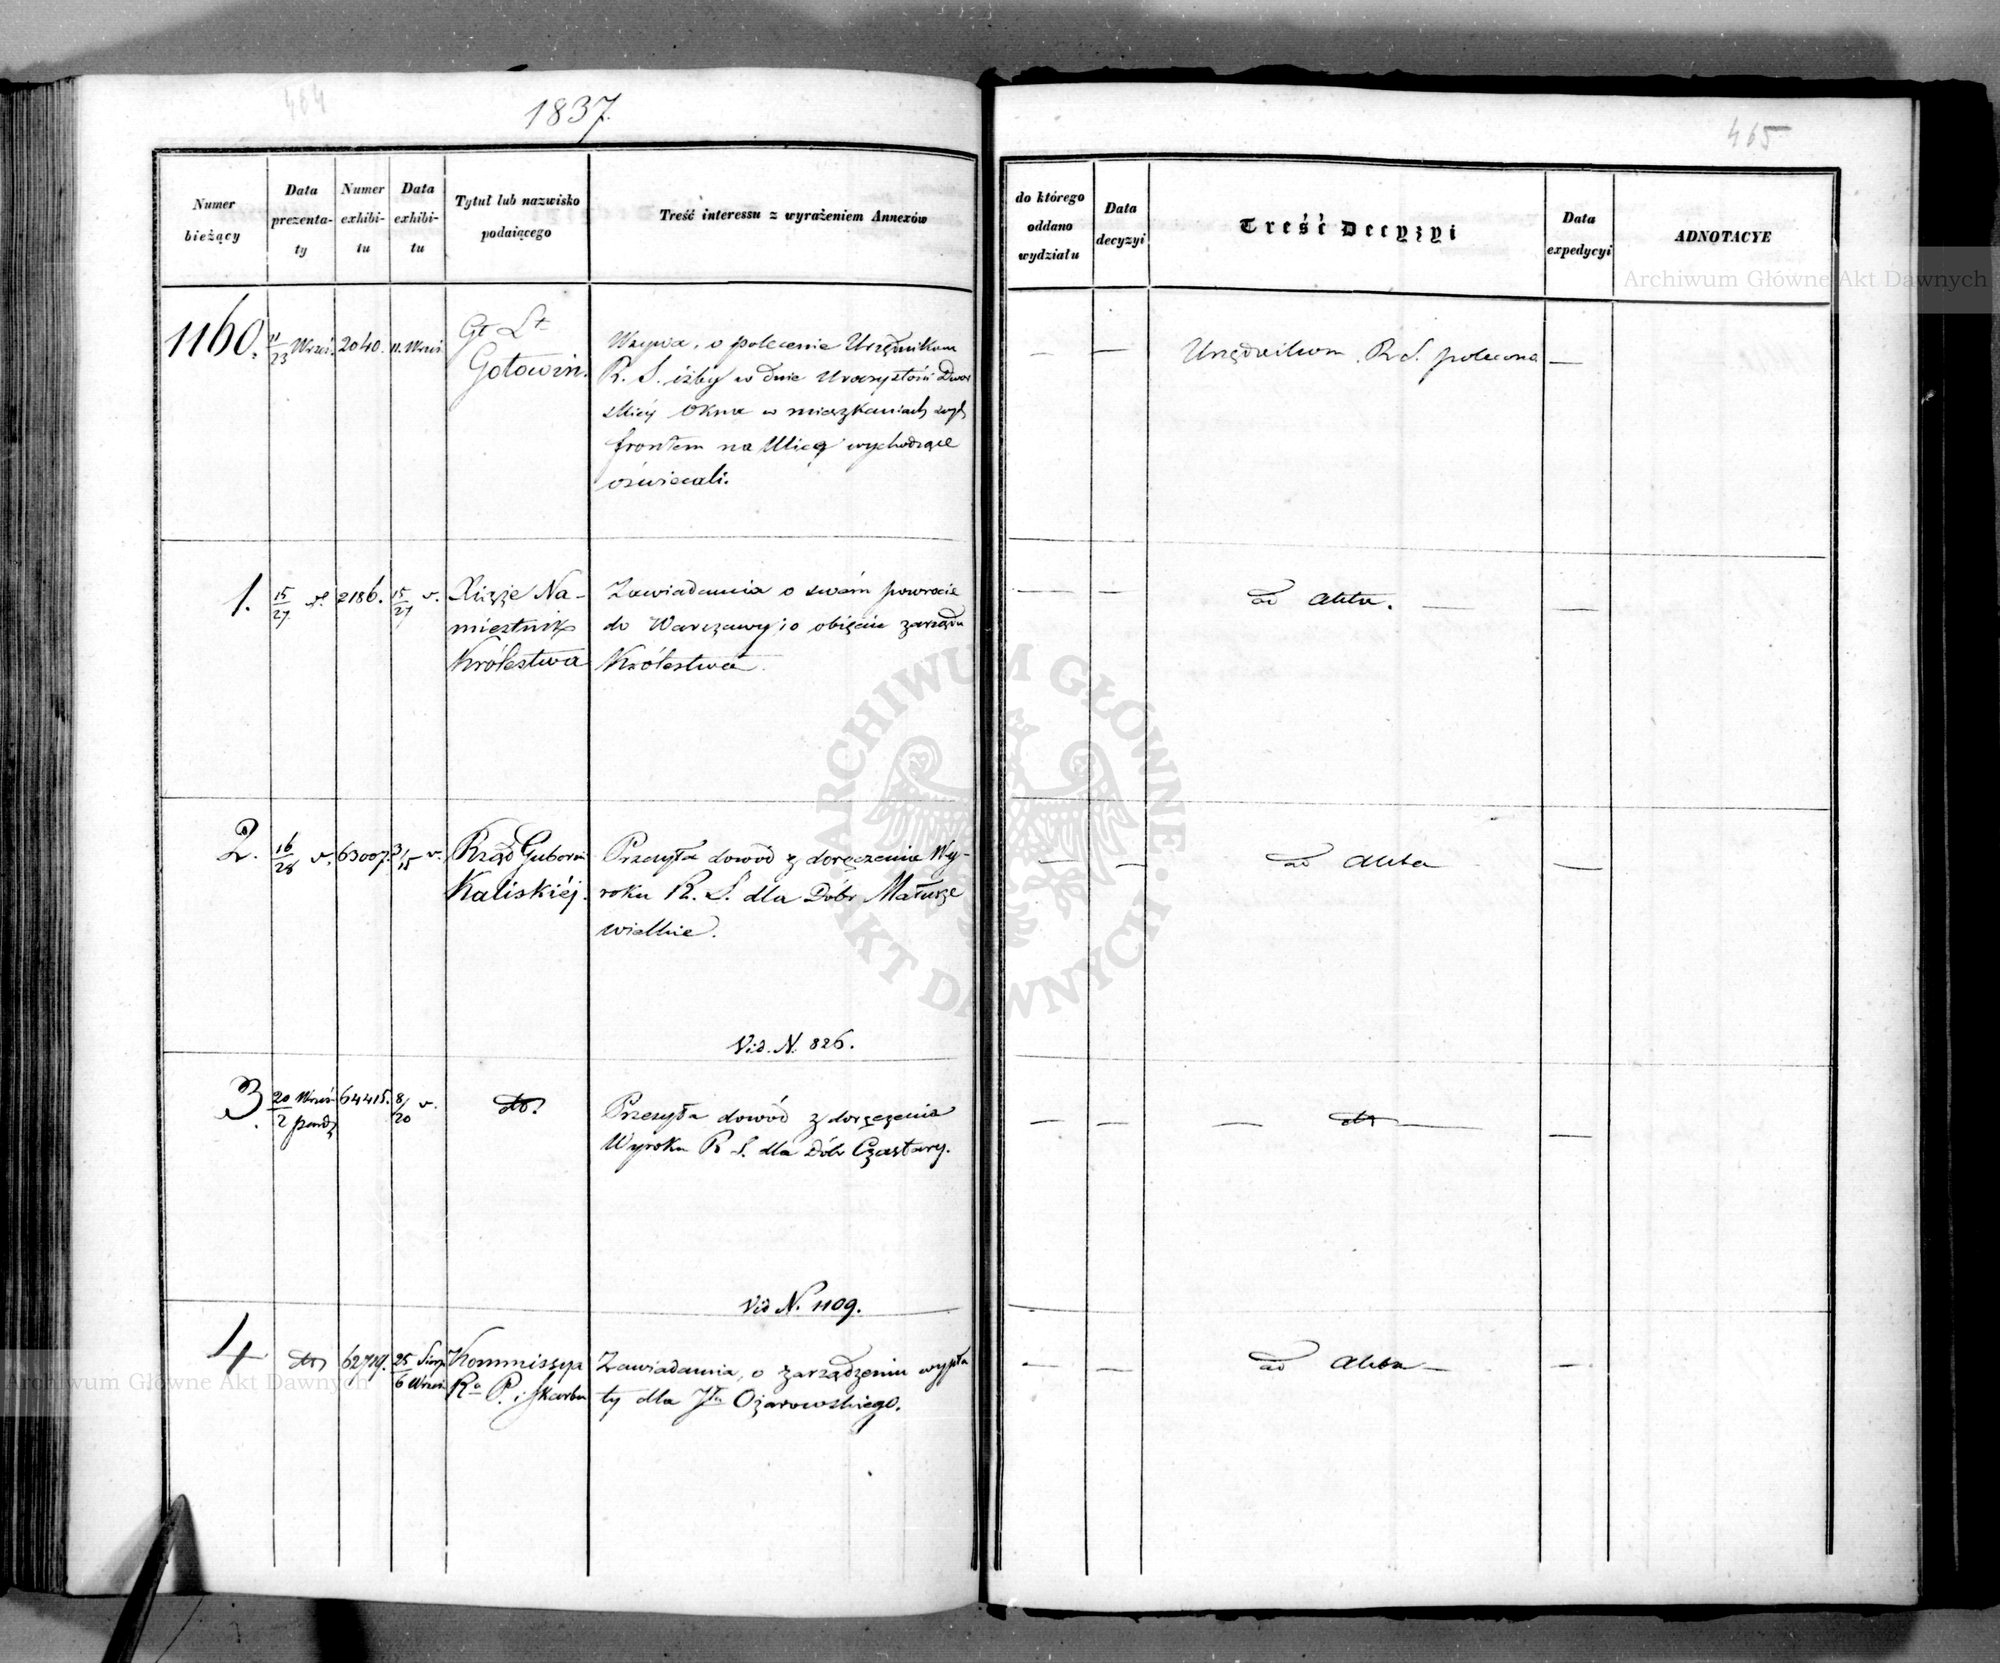 464
1837.
465
Numer bieżący
Data prezenta-ty
Numer exhibi-tu
Data exhibi-tu
Tytuł lub nazwisko podaiącego
Treść interessu z wyrażeniem Annexów
do którego oddano wydziału
Data decyzyi
Treść Decyzyi
Data expedycyi
ADNOTACYE
1160.
11/23 Wrześ.
2040.
11. Wrześ
Gł Lt
Gołowin.
Wzywa, o polecenie Urzędnikom
R. S. iżby w dnie Uroczystości Dwor
skiéj okna w mieszkaniach swych
frontem na Ulicę wychodzące
oświecali.
Urzędnikom R. S. polecono
1.
15/27 v.
2186.
15/27 v.
Xiąże Na-
miestnik
Królestwa
Zawiadamia o swém powrocie
do Warszawy i o obięciu zarządu
Królestwa.
ad Akta.
2.
16/28 v.
63007.
3/15 v.
Rząd Guberni
Kaliskiéj.
Przesyła dowód z doręczenia Wy-
roku R. S. dla Dóbr Małusze
wielkie.
Vid. N. 826.
ad Akta
3.
20 Wrześ
2 paźdz
64415.
8/20 v.
dto.
Przesyła dowód z doręczenia
Wyroku R. S. dla Dóbr Czastary.
Vid N. 1109.
dto
4
dto
62729.
25 Sierp
6 Wrześ
Kommissya
Ra P. i Skarbu
Zawiadamia, o zarządzeniu wypła
ty dla Jła Ożarowskiego.
ad Akta
Archiwum Główne Akt Dawnych
Archiwum Główne Akt Dawnych
ARCHIWUM GŁÓWNE AKT DAWNYCH